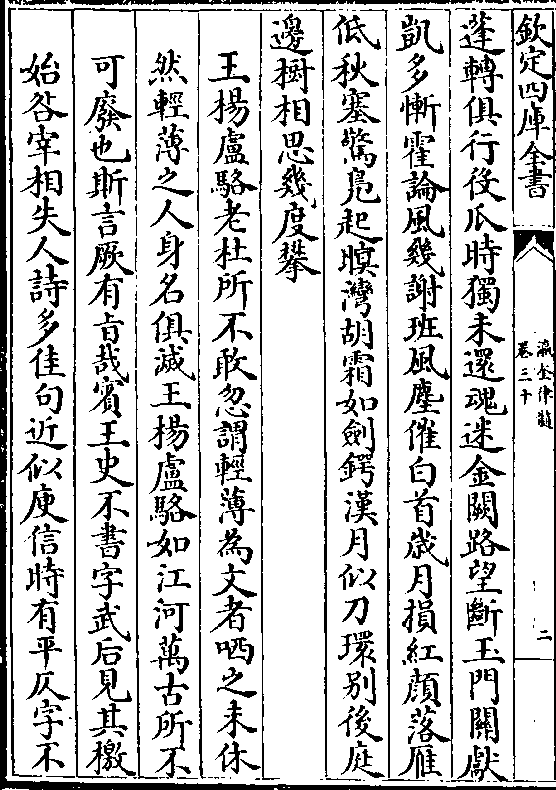 欽定四庫全書
瀛奎律髓
卷三十
二
蓬轉俱行役瓜時獨未還魂迷金闕路望斷玉門關獻
凱多慚霍論風幾謝班風塵催白首歲月損紅顔落雁
低秋塞驚鳧起暝灣胡霜如劍鍔漢月似刀環别後庭
邊樹相思幾度攀
王楊盧駱老杜所不敢忽謂輕薄為文者哂之未休
然輕薄之人身名俱滅王楊盧駱如江河萬古所不
可廢也斯言厥有旨哉賓王史不書字武后見其檄
始咎宰相失人詩多佳句近似庾信時有平仄字不